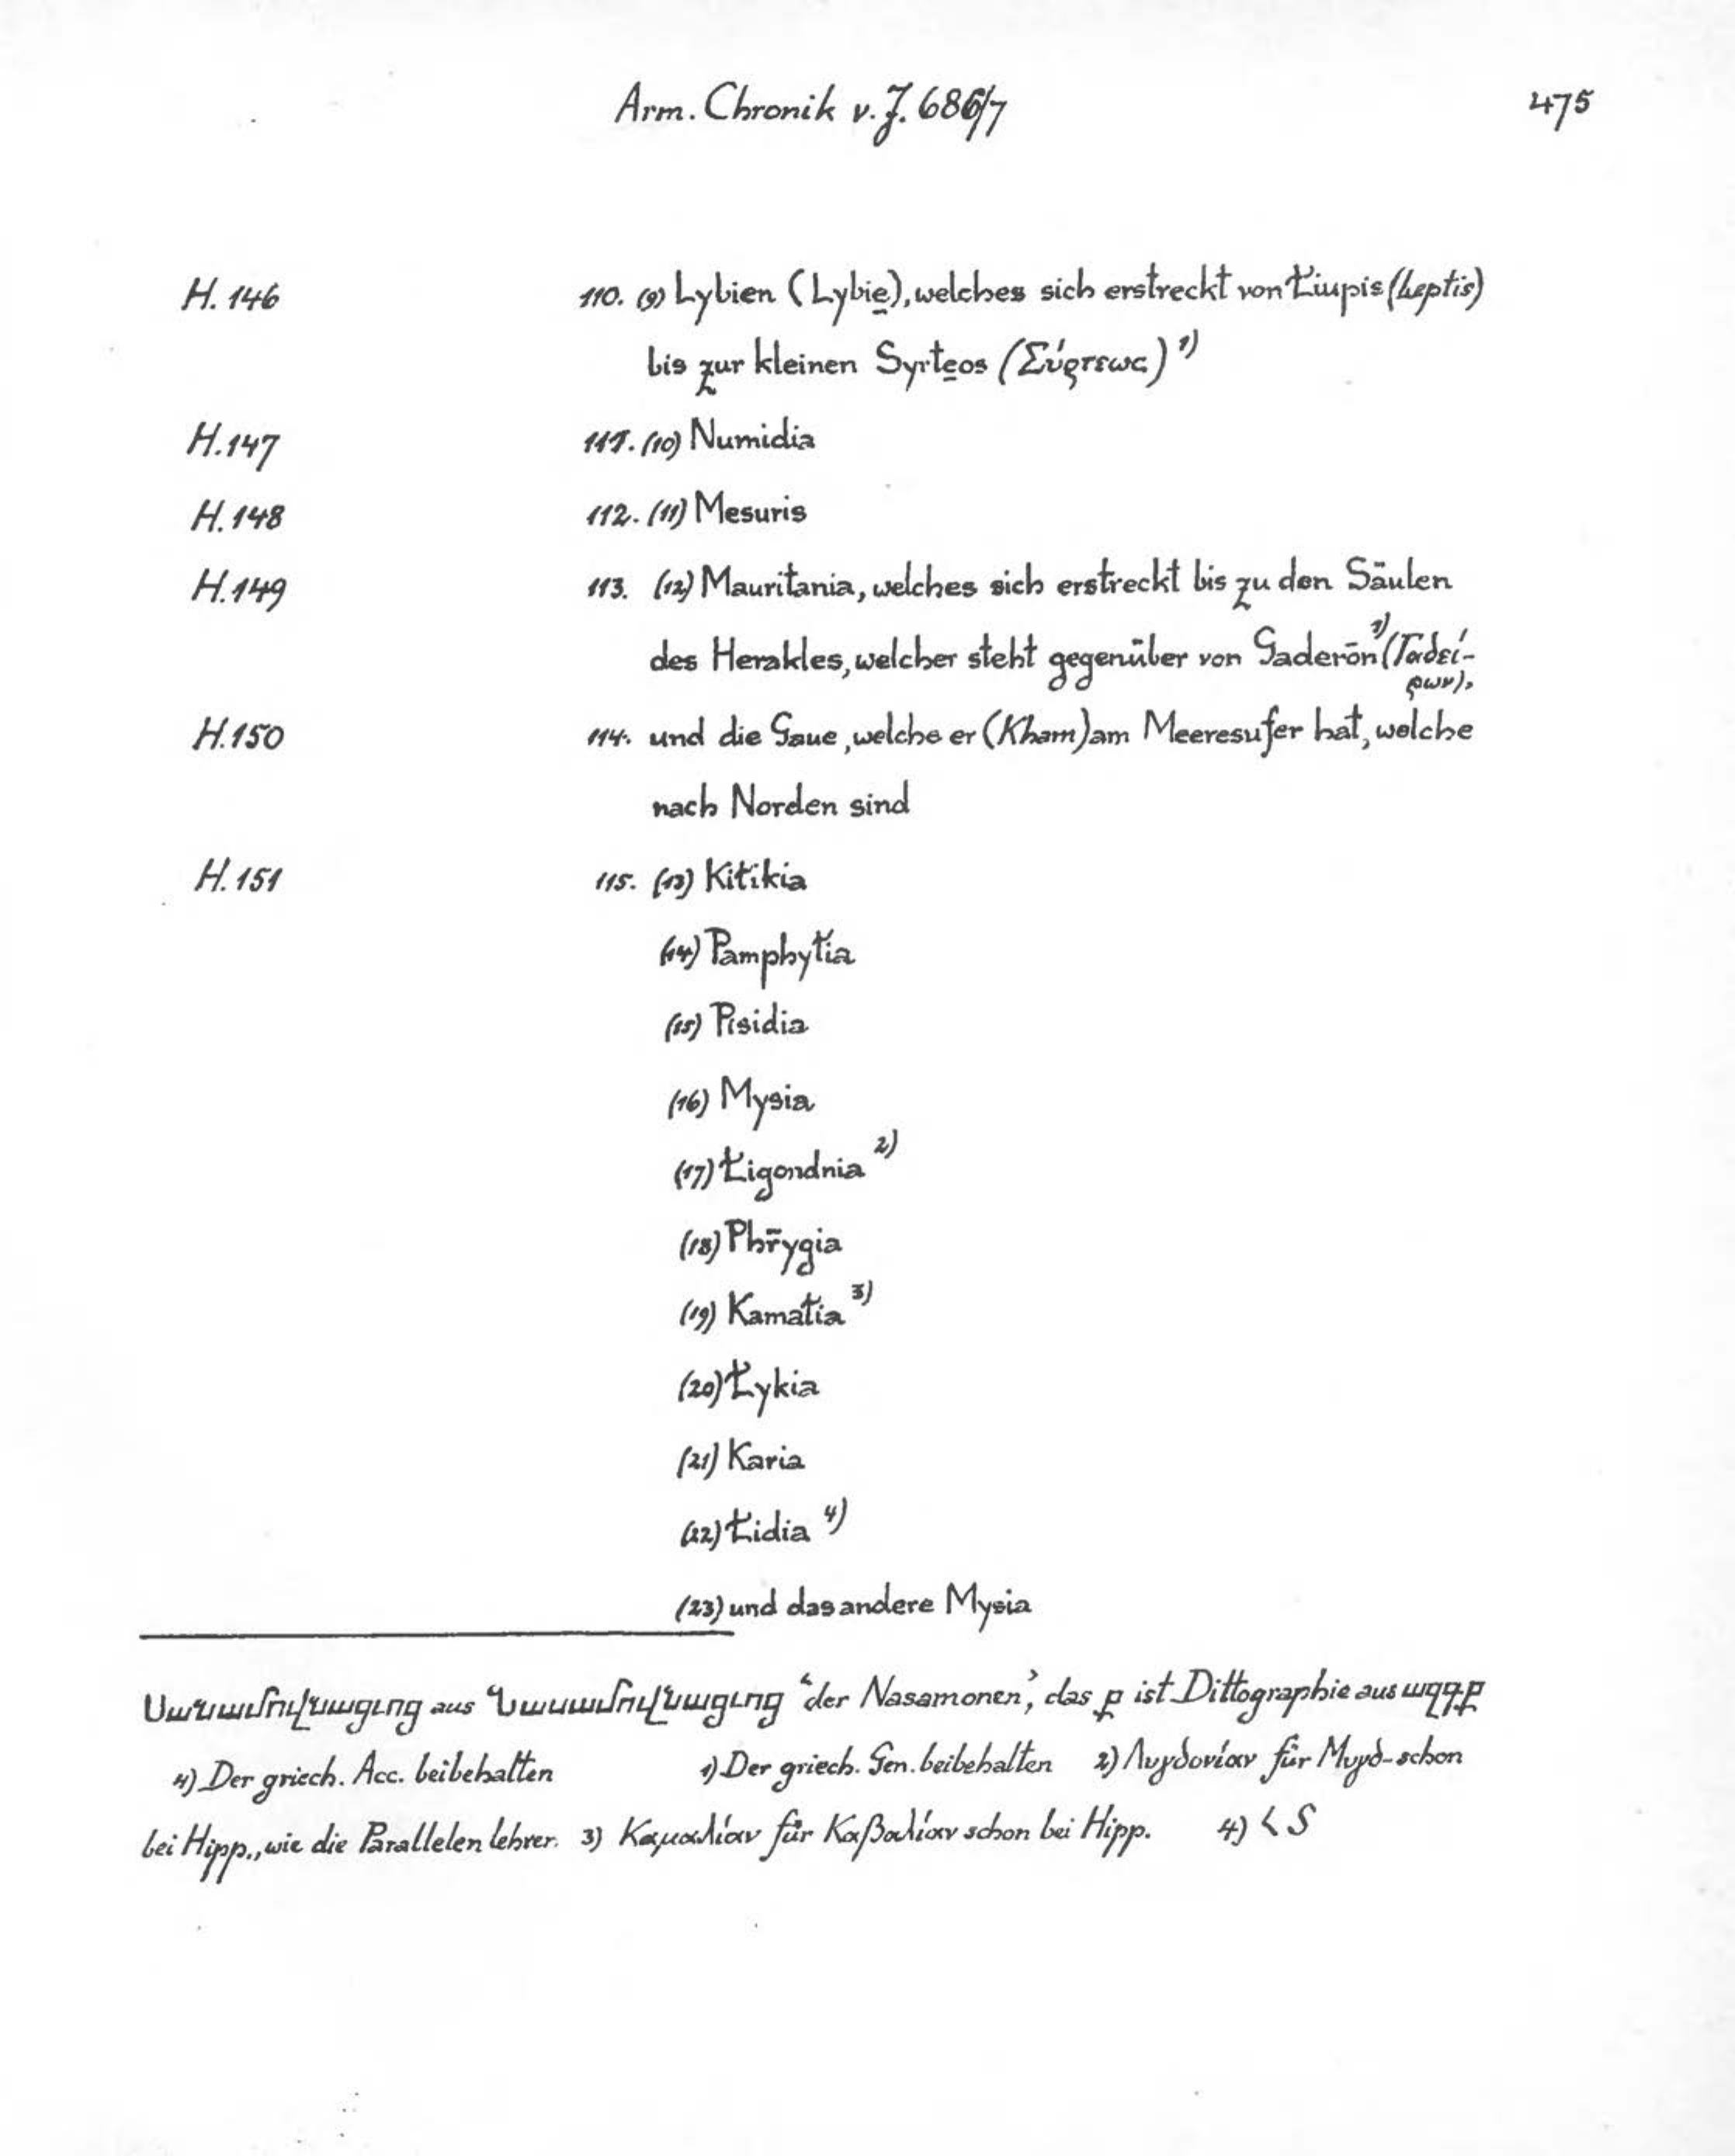 Arm. Chronik v. J. 686/7 475
H. 146 110. (9) Lybien (Lybie̱), welches sich erstreckt von Łiupis (Leptis)
bis zur kleinen Syrte̱os (Σύρτεως) 1)
H. 147 111. (10) Numidia
H. 148 112. (11) Mesuris
H. 149 113. (12) Mauritania, welches sich erstreckt bis zu den Säulen
des Herakles, welcher steht gegenüber von Gaderōn 1) (Γαδεί-
ρων),
H. 150 114. und die Gaue, welche er (Kham) am Meeresufer hat, welche
nach Norden sind
H. 151 115. (13) Kiłikia
(14) Pamphyłia
(15) Pisidia
(16) Mysia
(17) Łigondnia 2)
(18) Phr̄ygia
(19) Kamałia 3)
(20) Łykia
(21) Karia
(22) Łidia 4)
(23) und das andere Mysia
Սանամովնացւոց aus Նասամովնացւոց ‘der Nasamonen’, das ք ist Dittographie aus ազգք
4) Der griech. Acc. beibehalten 1) Der griech. Gen. beibehalten 2) Λυγδονίαν für Μυγδ- schon
bei Hipp., wie die Parallelen lehren. 3) Καμαλίαν für Καβαλίαν schon bei Hipp. 4) < S